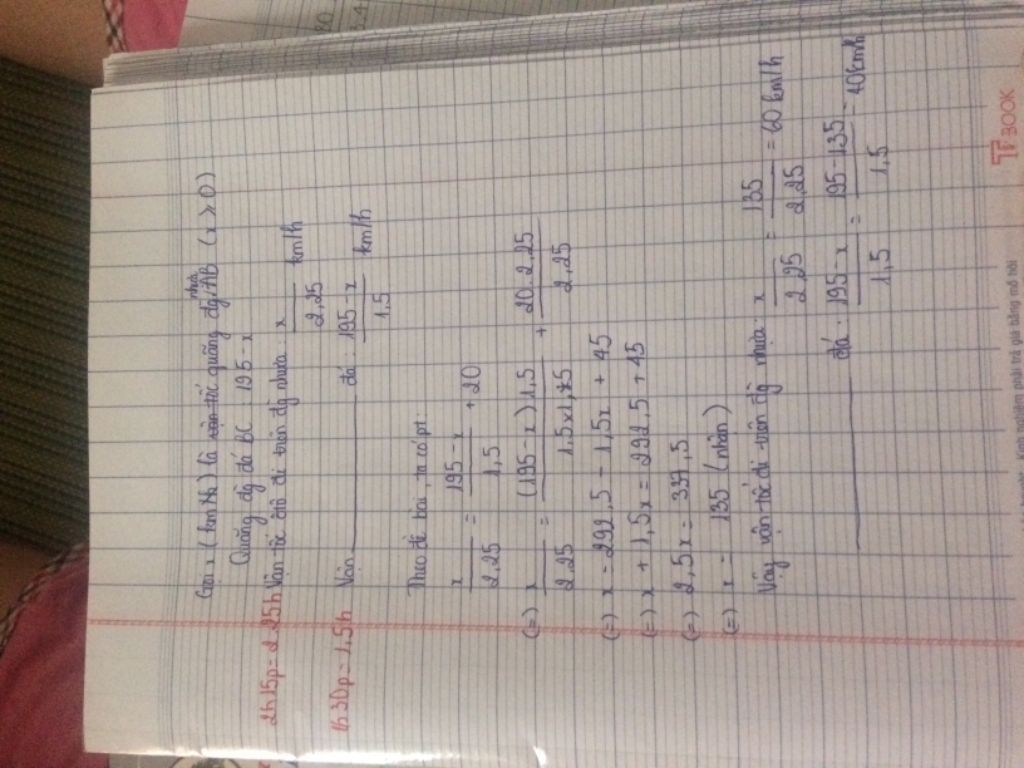 Gọi x (km/h) là vận tốc quãng đg nhựa AB (x > 0)
Quãng đg đá BC : 195 - x
2h15p = 2.25h Vận tốc ôtô đi trên đg nhựa : x / 2,25 km/h
1h30p = 1,5h Vận ______ đá : 195 - x / 1,5 km/h
Theo đề bài, ta có pt :
x / 2,25 = 195 - x / 1,5 + 20
(=) x / 2,25 = (195 - x) 1,5 / 1,5 x 1,5 + 20. 2,25 / 2,25
(=) x = 292,5 - 1,5x + 45
(=) x + 1,5x = 292,5 + 45
(=) 2,5x = 337,5
(=) x = 135 (nhận)
Vậy vận tốc đi trên đg nhựa : x / 2,25 = 135 / 2,25 = 60 km/h
______ đá : 195 - x / 1,5 = 195 - 135 / 1,5 = 40 km/h
BOOK
Kinh nghiệm phải trả giá bằng mồ hôi